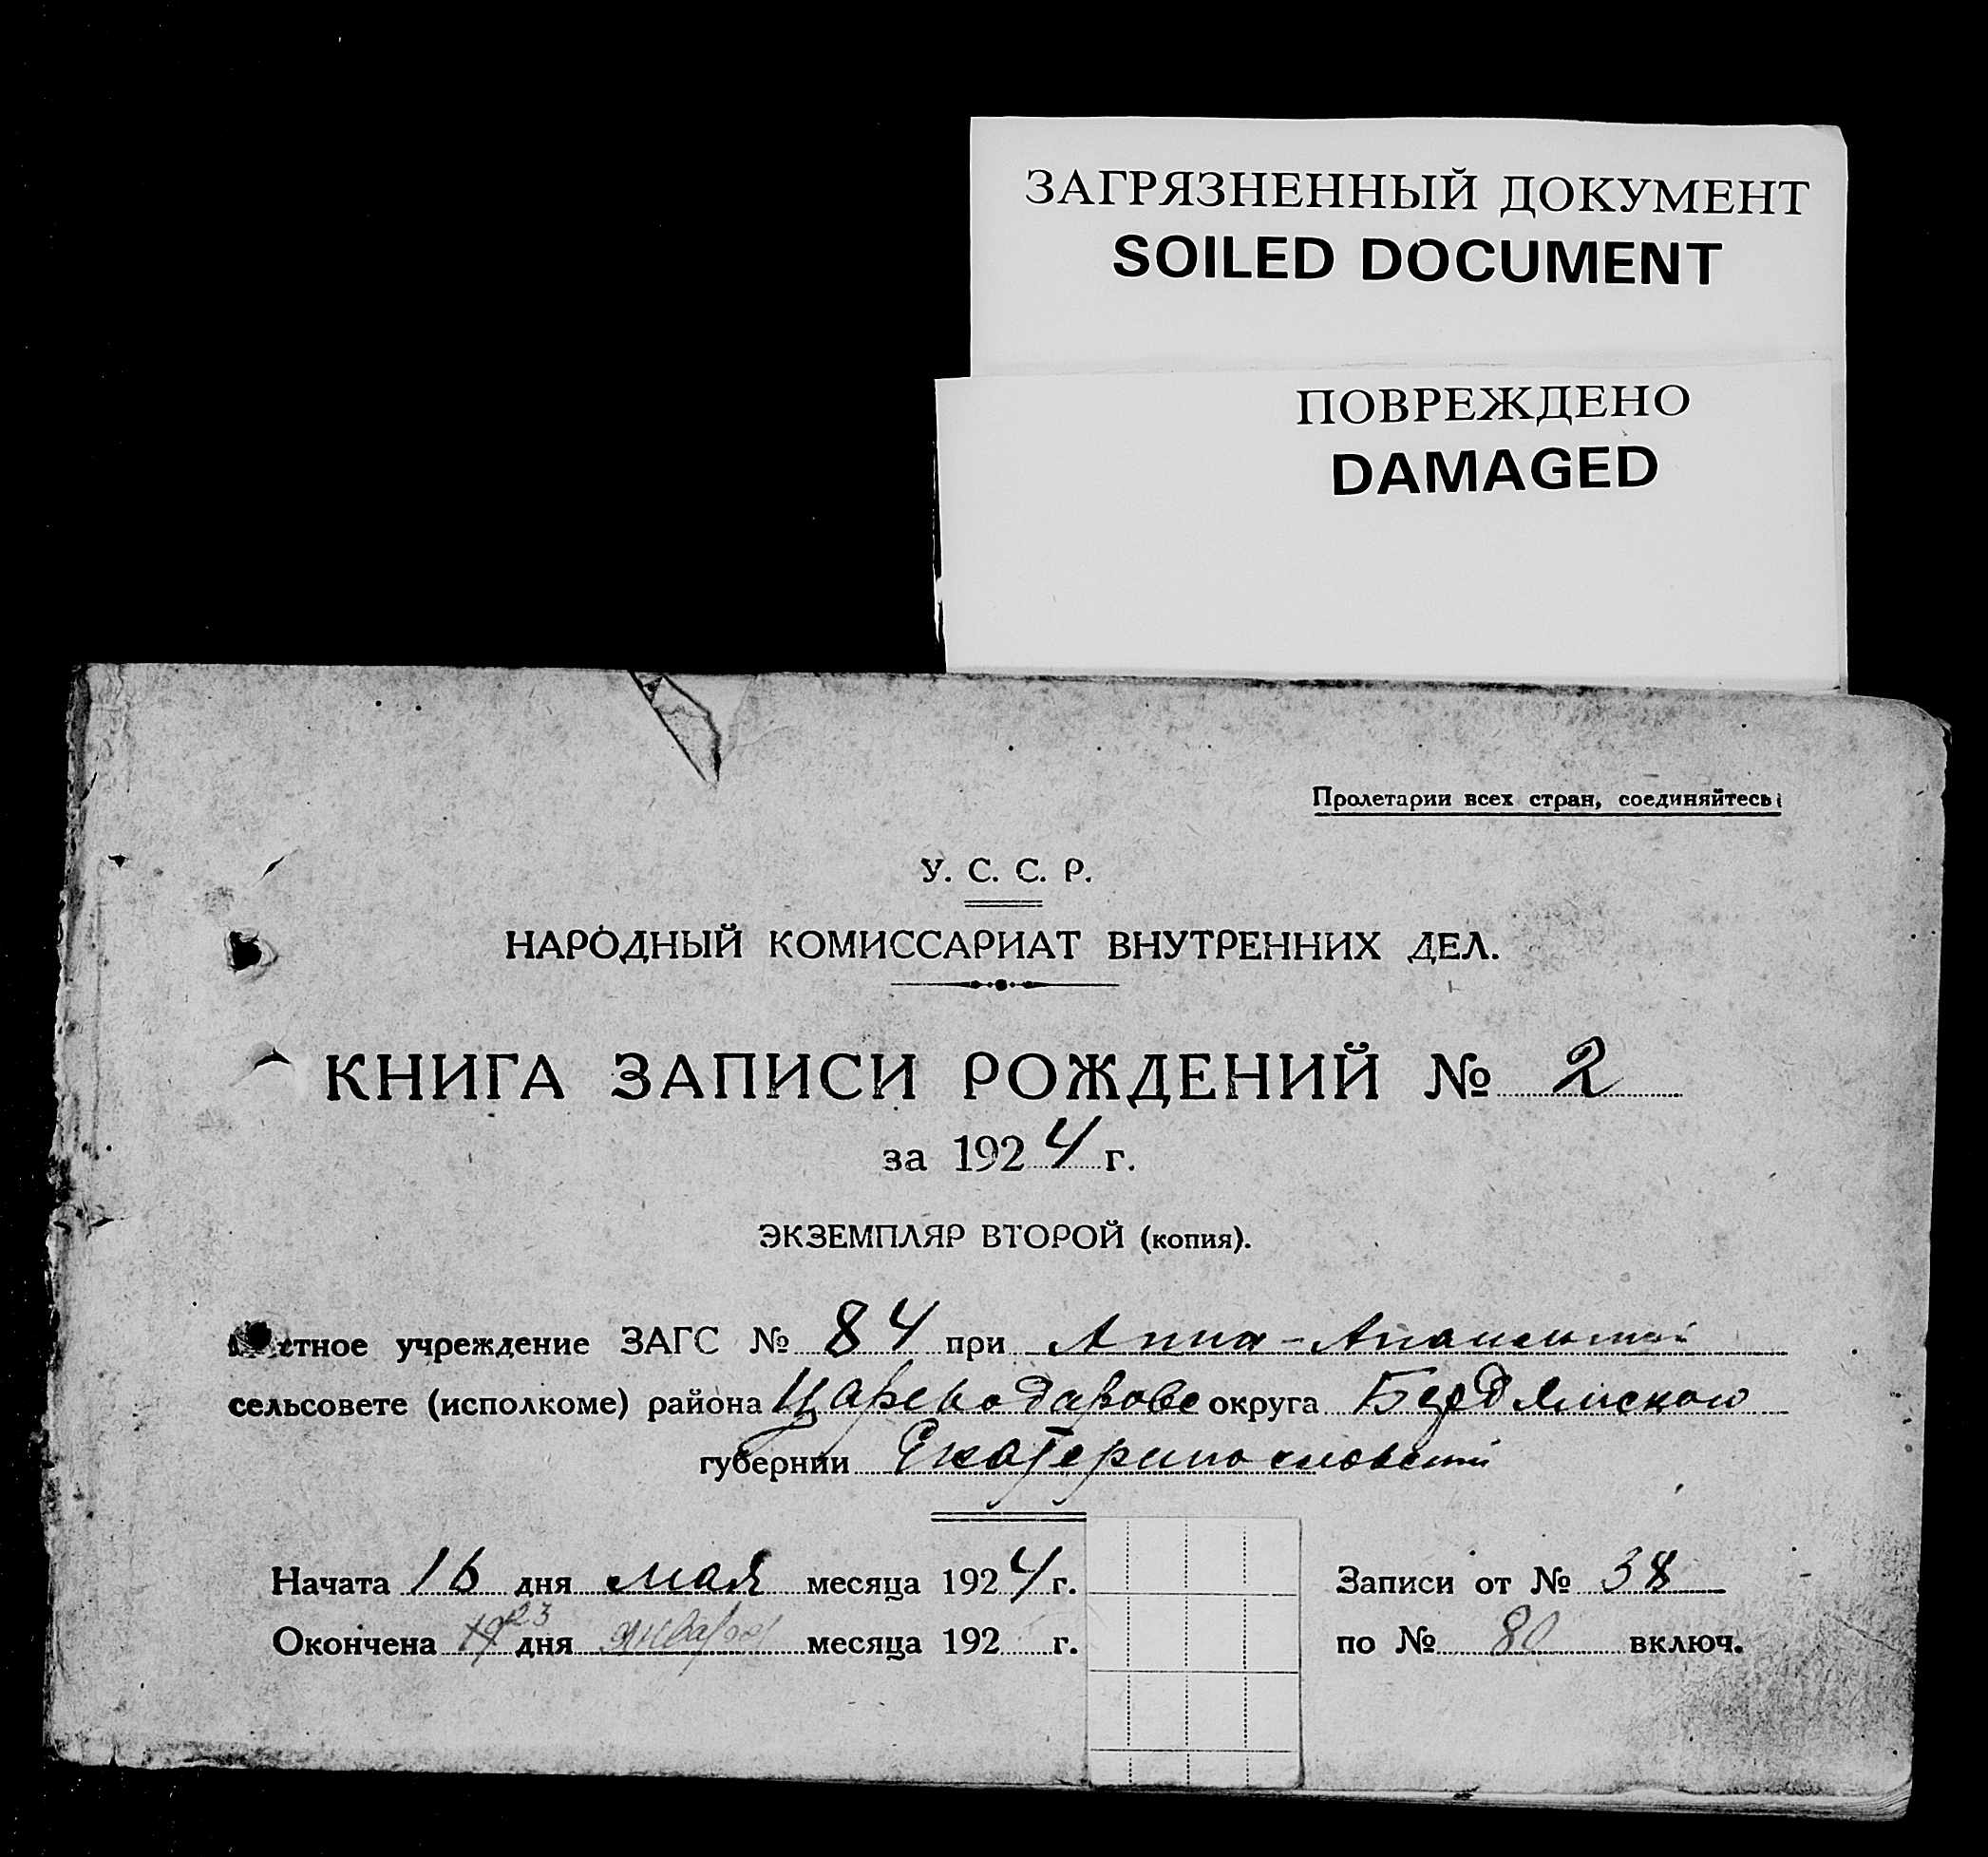 ЗАГРЯЗНЕННЫЙ ДОКУМЕНТ
SOILED DOCUMENT
ПОВРЕЖДЕНО
DAMAGED
Пролетарии всех стран, соединяйтесь!
У. С. С. Р.
НАРОДНЫЙ КОМИССАРИАТ ВНУТРЕННИХ ДЕЛ.
КНИГА ЗАПИСИ РОЖДЕНИЙ № 2
за 1924 г.
ЭКЗЕМПЛЯР ВТОРОЙ (копия).
стное учреждение ЗАГС № 84 при Анна-
сельсовете (исполкоме) района Цареводарове округа Бердянского
губернии Екатеринославской
Начата 16 дня мая месяца 1924 г. Записи от № 38
Окончена 23 дня января месяца 192 г. по № 80 включ.